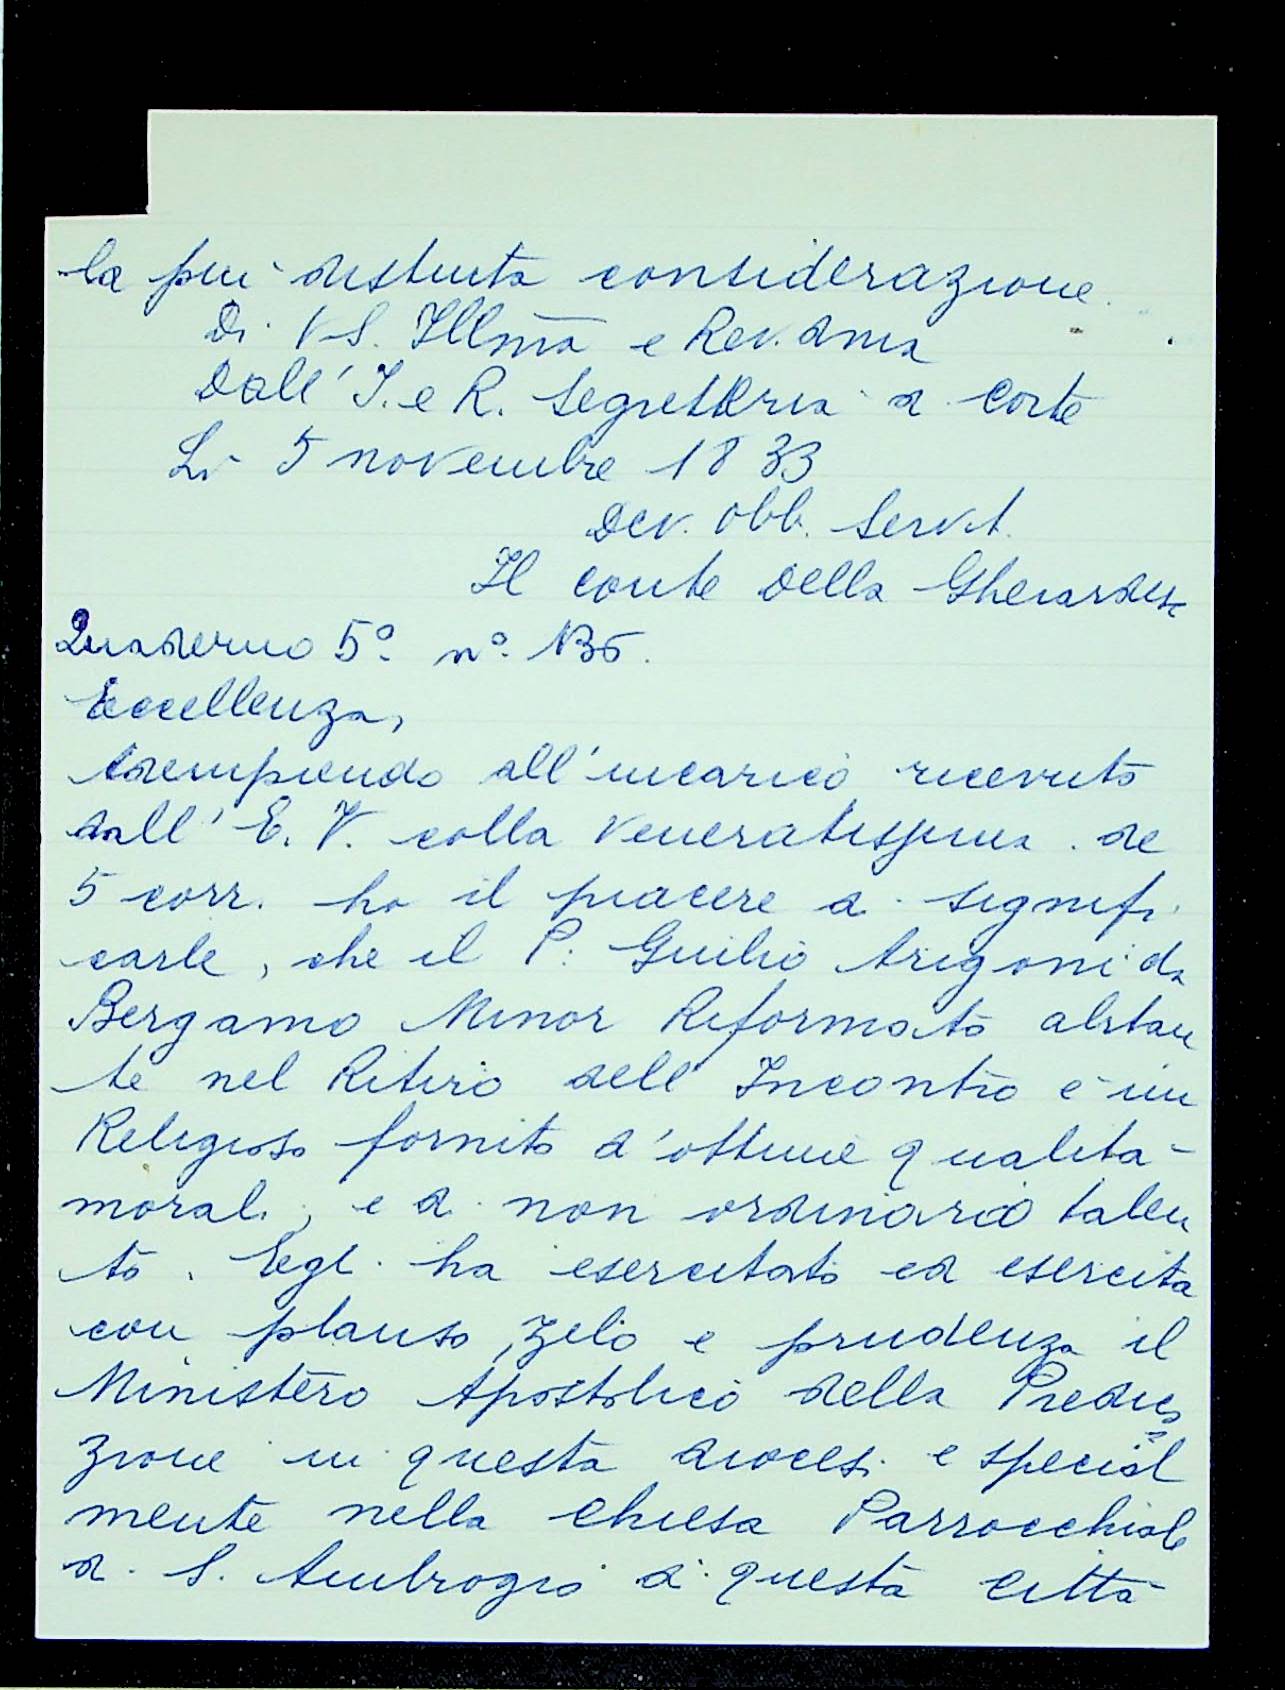 la più distinta considerazione.
Di V S. Illma e Rev.dma
Dall' I. e R. Segretteria di Corte
Li 5 novembre 1833
Dev. obb. Servit.
Il conte Della Gherardesc
Quaderno 5º nº 136.
Eccellenza,
Adempiendo all'incarico ricevuto
dall' E. V. colla veneratissima de
5 corr. ho il piacere di signifi
carle, che il P. Giulio Arigoni da
Bergamo Minor Riformato abitan
te nel Ritiro dell' Incontro è un
Religioso fornito d'ottime qualità
morali, e di non ordinario talen
to. Egli ha esercitato ed esercita
con plauso, zelo e prudenza il
Ministero Apostolico della Predica
zione in questa diocesi e special
mente nella Chiesa Parrocchiale
di S. Ambrogio di questa città